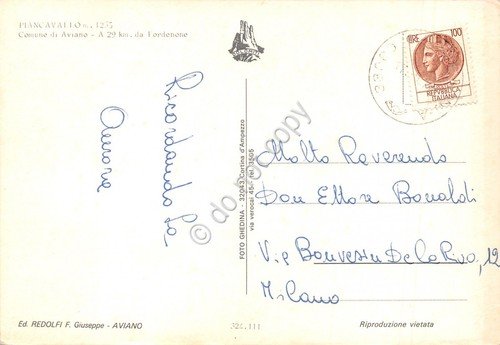 PIANCAVALLO m. 1255
Comune di Aviano - A 29 km. da Pordenone
Ricordando La
FOTO GHEDINA - 32043 Cortina d'Ampezzo
LIRE 100
REPUBBLICA
ITALIANA
Molto Reverendo
Don Ettore Bonaldi
Via Bonvesin De La Riva, 12
Milano
Ed. REDOLFI F. Giuseppe - AVIANO
324.111
Riproduzione vietata